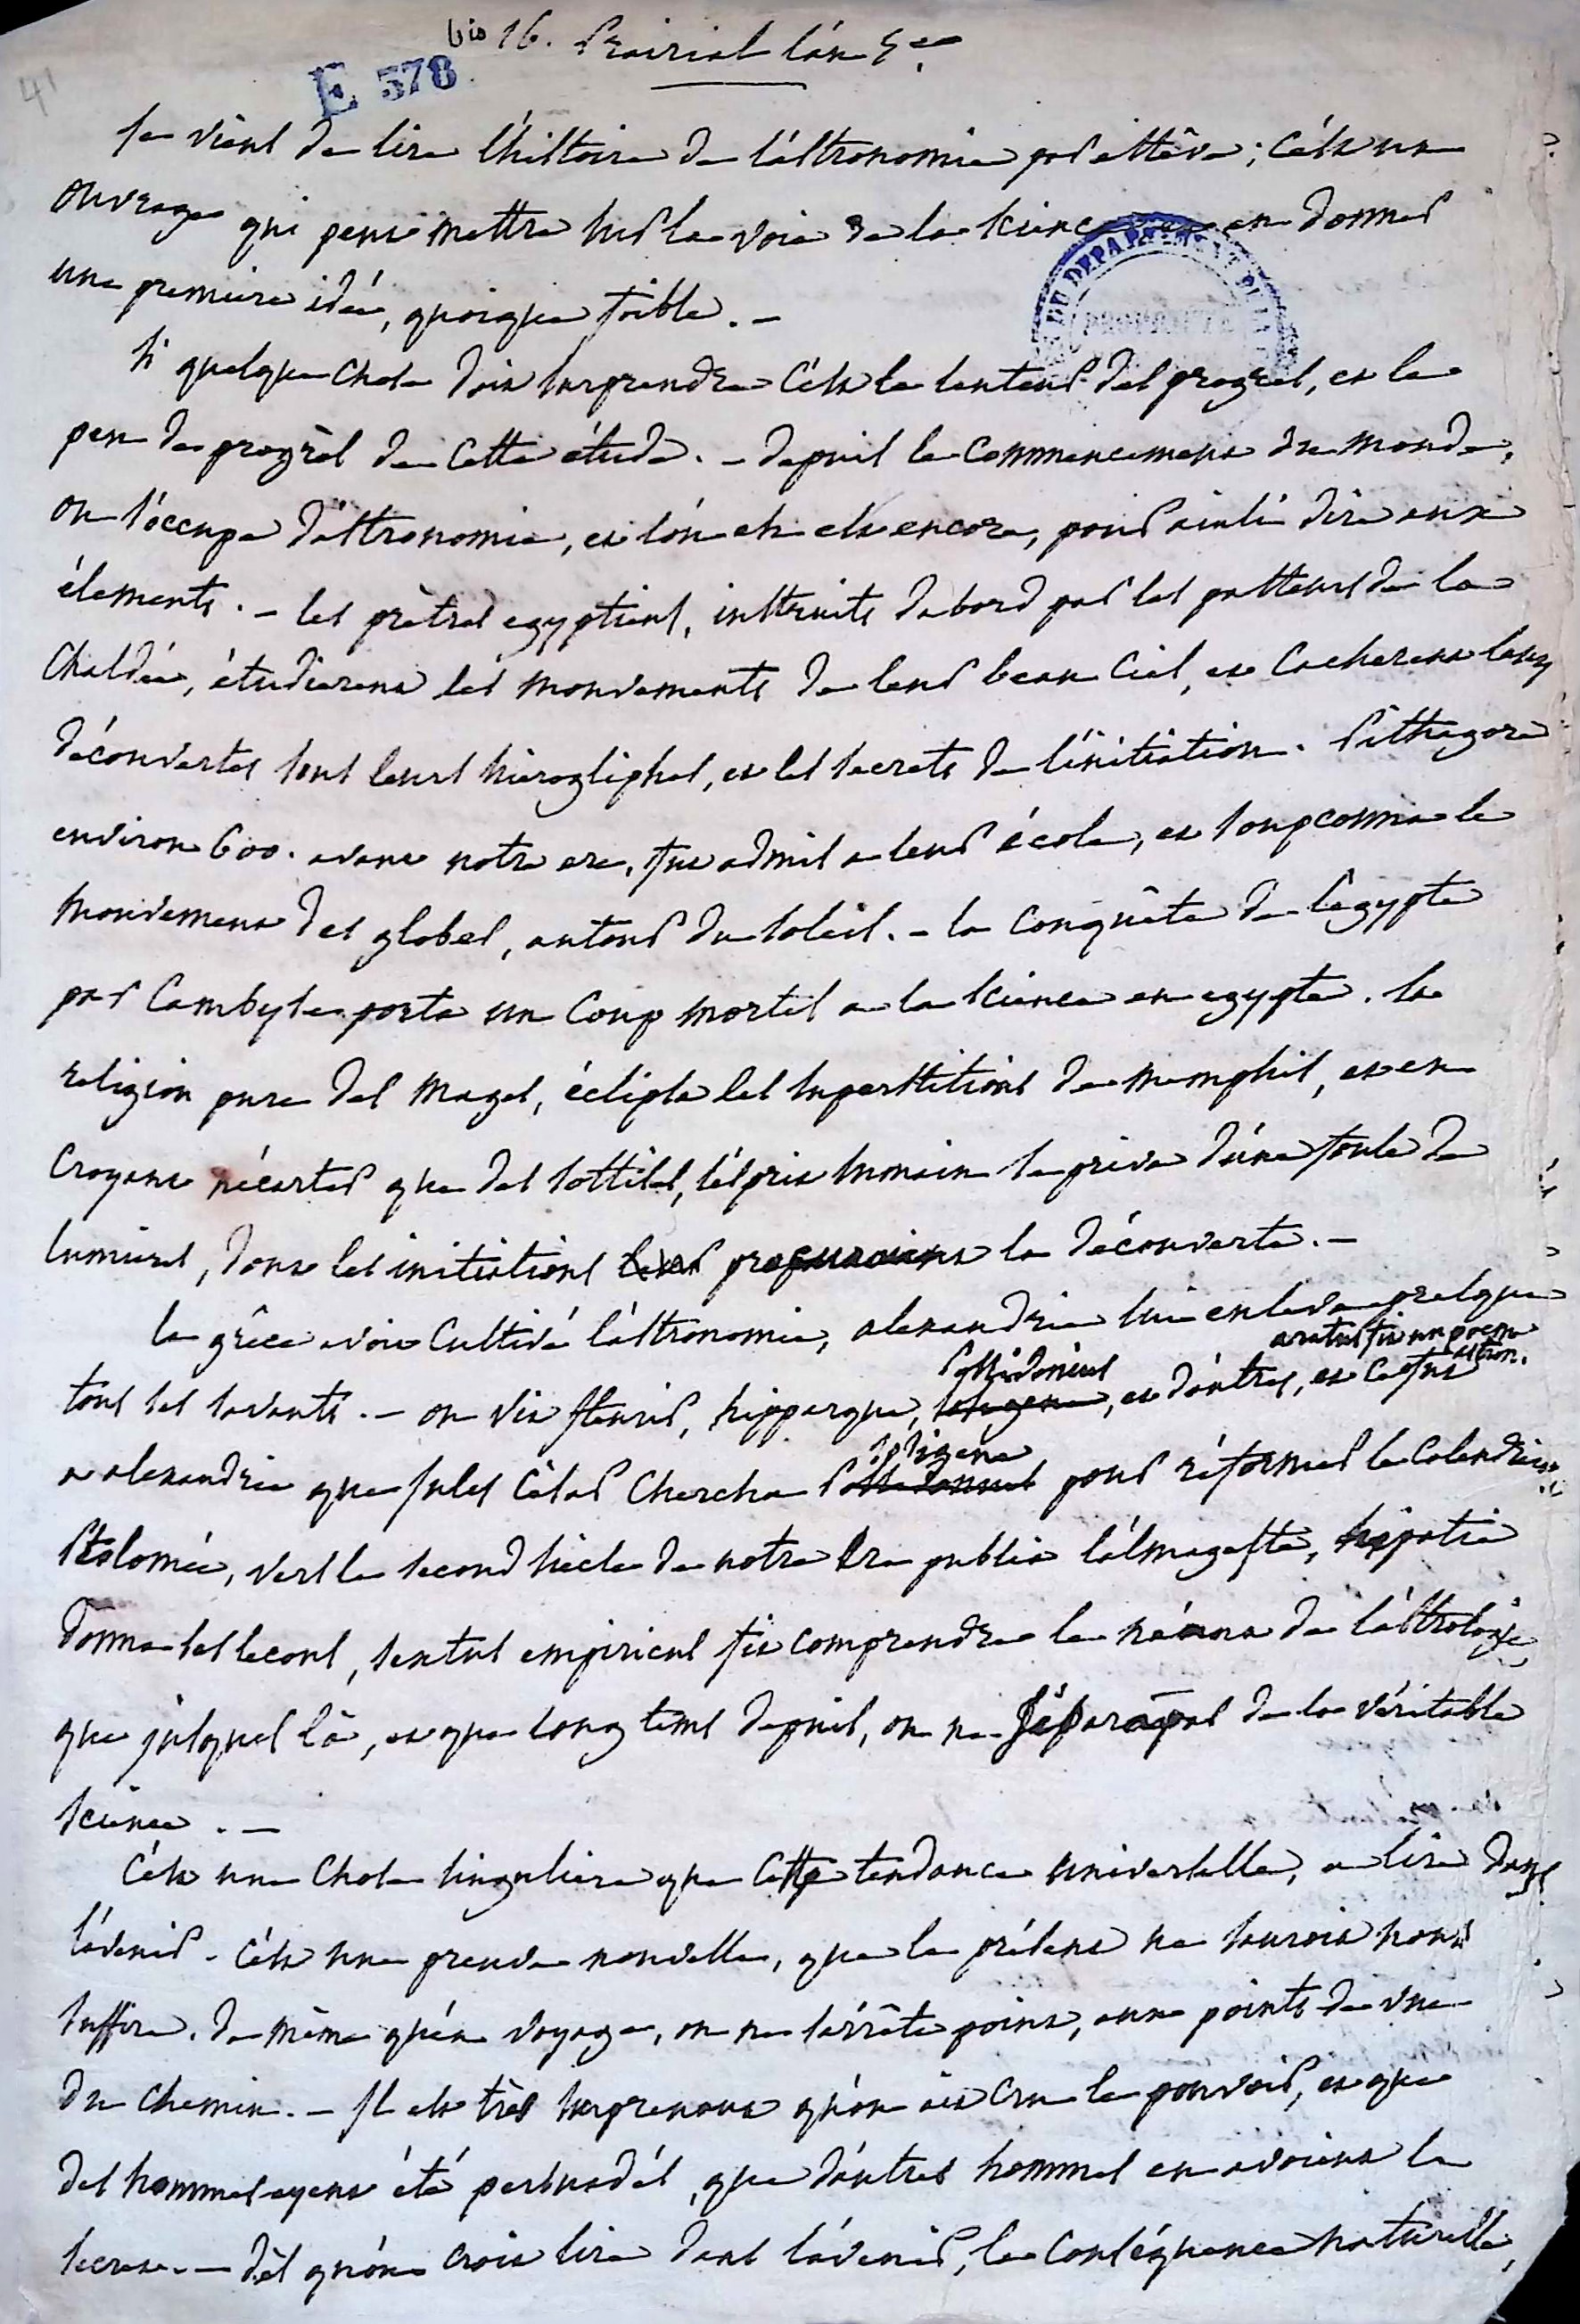 bis 16. Prairial l'an 5e.
E 378
41
Je viens de lire l'histoire de l'astronomie par estêve ; c'est un
ouvrage qui peut mettre sur la voie de la science et en donner
une premiere idée, quoique foible. –
DU DEPARTEMENT
PROPRIETE
Si quelque chose doit surprendre c'est la lenteur des progres, et le
peu de progrès de cette étude. – depuis le commencement du monde,
on s'occupe d'astronomie, et l'on en est encore, pour ainsi dire aux
élements. – les prêtres egyptiens, instruits d'abord par les pasteurs de la
Chaldée, étudierent les mouvements de leur beau ciel, et cacherent leurs
découvertes sous leurs hieroglyphes, et les secrets de l'initiation. Pithagore
environ 600. avant notre ere, fut admis a leur école, et soupconna le
mouvement des globes, autour du soleil. – la conquête de l'egypte
par Cambyse porta un coup mortel a la science en egypte. la
religion pure des mages, éclipsa les superstitions de memphis, et en
croyant n'écarter que des sottises, l'esprit humain se priva d'une foule de
lumieres, dont les initiations leur procuroient la découverte. –
la grêce avoit cultivé l'astronomie, alexandrie lui enleva presque
aratus fit un poem
astron.
Possidonius
tous ses savants. – on vit fleurir, hipparque, sosigene, et d'autres, et ce fut
sosigene
a alexandrie que jules César chercha Possidonius pour réformer le calendrier.
Ptolomée, vers le second siècle de notre Ere publia l'almageste, hypatie
donna des lecons, sextus empiricus fit comprendre le néant de l'astrologie,
que jusques là, et que long tems depuis, on ne sépara pas de la véritable
science. –
C'est une chose singuliere que cette tendance universelle, a lire dans
l'avenir. c'est une preuve nouvelle, que le présent ne sauroit nous
suffire. de même qu'en voyage, on ne s'arrête point, aux points de vue
du chemin. – Il est très surprenant qu'on ait cru le pouvoir, et que
des hommes ayent été persuadés, que d'autres hommes en avoient le
secret. – dès qu'on croit lire dans l'avenir, la conséquence naturelle,